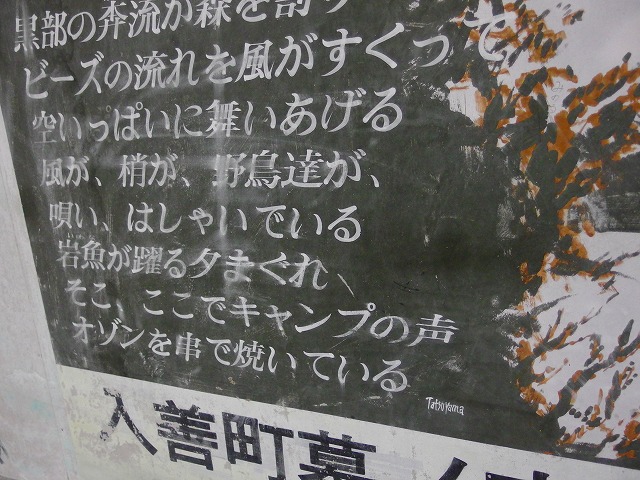 黒部の奔流が森を割り
ビーズの流れを風がすくって
空いっぱいに舞いあげる
風が、梢が、野鳥達が、
唄い、はしゃいでいる
岩魚が躍る夕まぐれ、
そこ、ここでキャンプの声
オゾンを串で焼いている
Tatsoyama
入善町墓ノ木